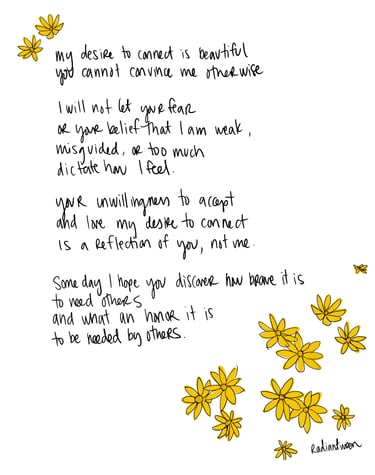 my desire to connect is beautiful
you cannot convince me otherwise
I will not let your fear
or your belief that I am weak,
misguided, or too much
dictate how I feel.
your unwillingness to accept
and love my desire to connect
is a reflection of you, not me.
Some day I hope you discover how brave it is
to need others
and what an honor it is
to be needed by others.